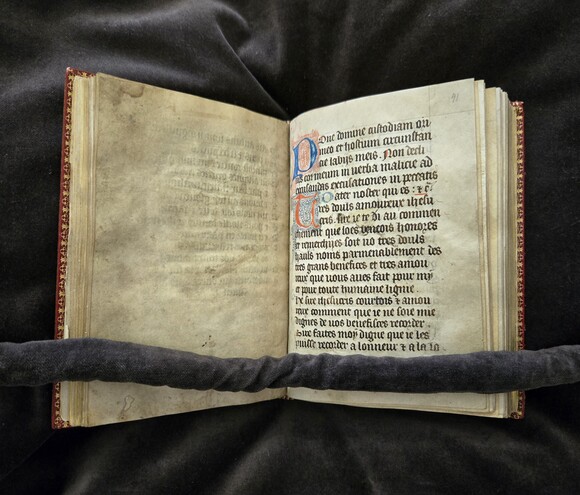 141
Pone domine custodiam ori
meo et hostium circunstan
cie labijs meis. Non decli
nes cor meum in verba malicie ad
excusandas excusationes in peccatis
Pater noster qui es : &c̄.
Tres douls amoureux ihesu
cris. sire ie te di au commen
chement que loes gentous honores
et merchijes soit uo tres douls
hauls noms parmenablement des
tres grans benefices et tres amou
reux que uous aues fait pour my
et pour toute humaine ligne
De sire ihesucris courtois & amou
reux comment que ie ne soie mie
dignes de uos benefisces recorder
Sire faites moy digne que ie les
puisse recorder a lonneur & a la lo